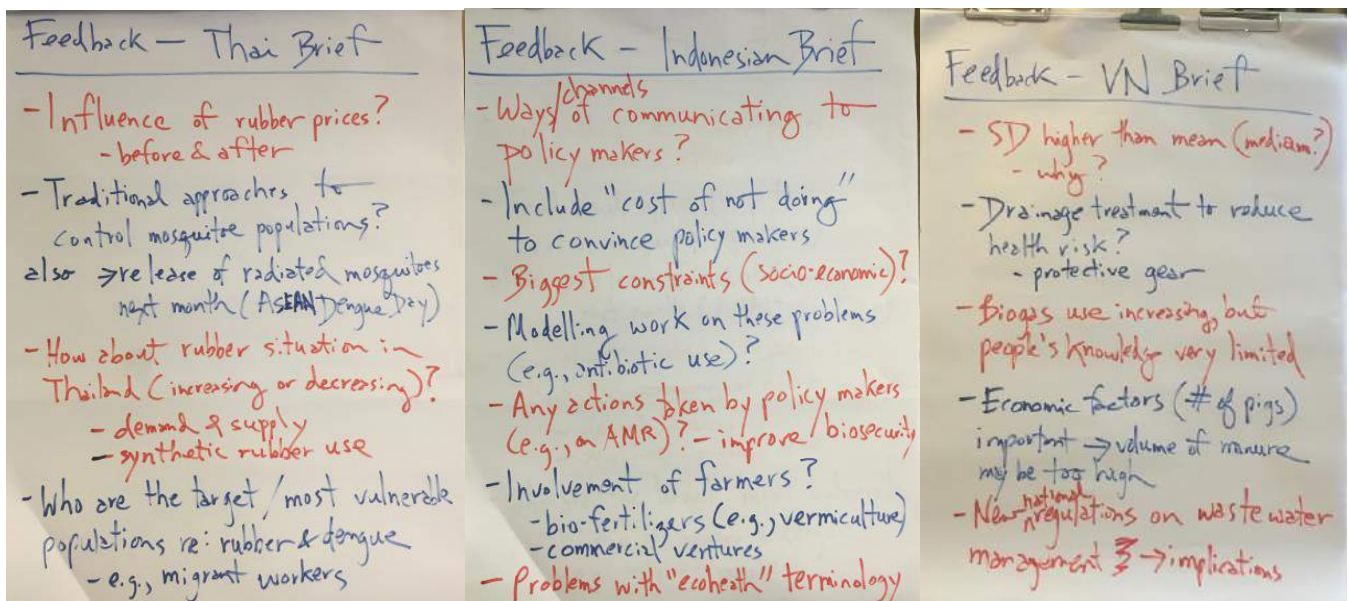 Feedback — Thai Brief
- Influence of rubber prices?
- before & after
- Traditional approaches to
control mosquitoe populations?
also → release of radiated mosquitoes
next month (ASEAN Dengue Day)
- How about rubber situation in
Thailand (increasing or decreasing)?
- demand & supply
- synthetic rubber use
- Who are the target / most vulnerable
populations re: rubber & dengue
- e.g., migrant workers
Feedback - Indonesian Brief
- Ways/channels of communicating to
policy makers?
- Include "cost of not doing"
to convince policy makers
- Biggest constraints (socio-economic)?
- Modelling work on these problems
(e.g., antibiotic use)?
- Any actions taken by policy makers
(e.g., on AMR)? - improve biosecurity
- Involvement of farmers?
- bio-fertilizers (e.g., vermiculture)
- commercial ventures
- Problems with "ecoheath" terminology
Feedback - VN Brief
- SD higher than mean (median?)
- why?
- Drainage treatment to reduce
health risk?
- protective gear
- Biogas use increasing, but
people's knowledge very limited
- Economic factors (# of pigs)
important → volume of manure
may be too high
- New national regulations on waste water
management → implications